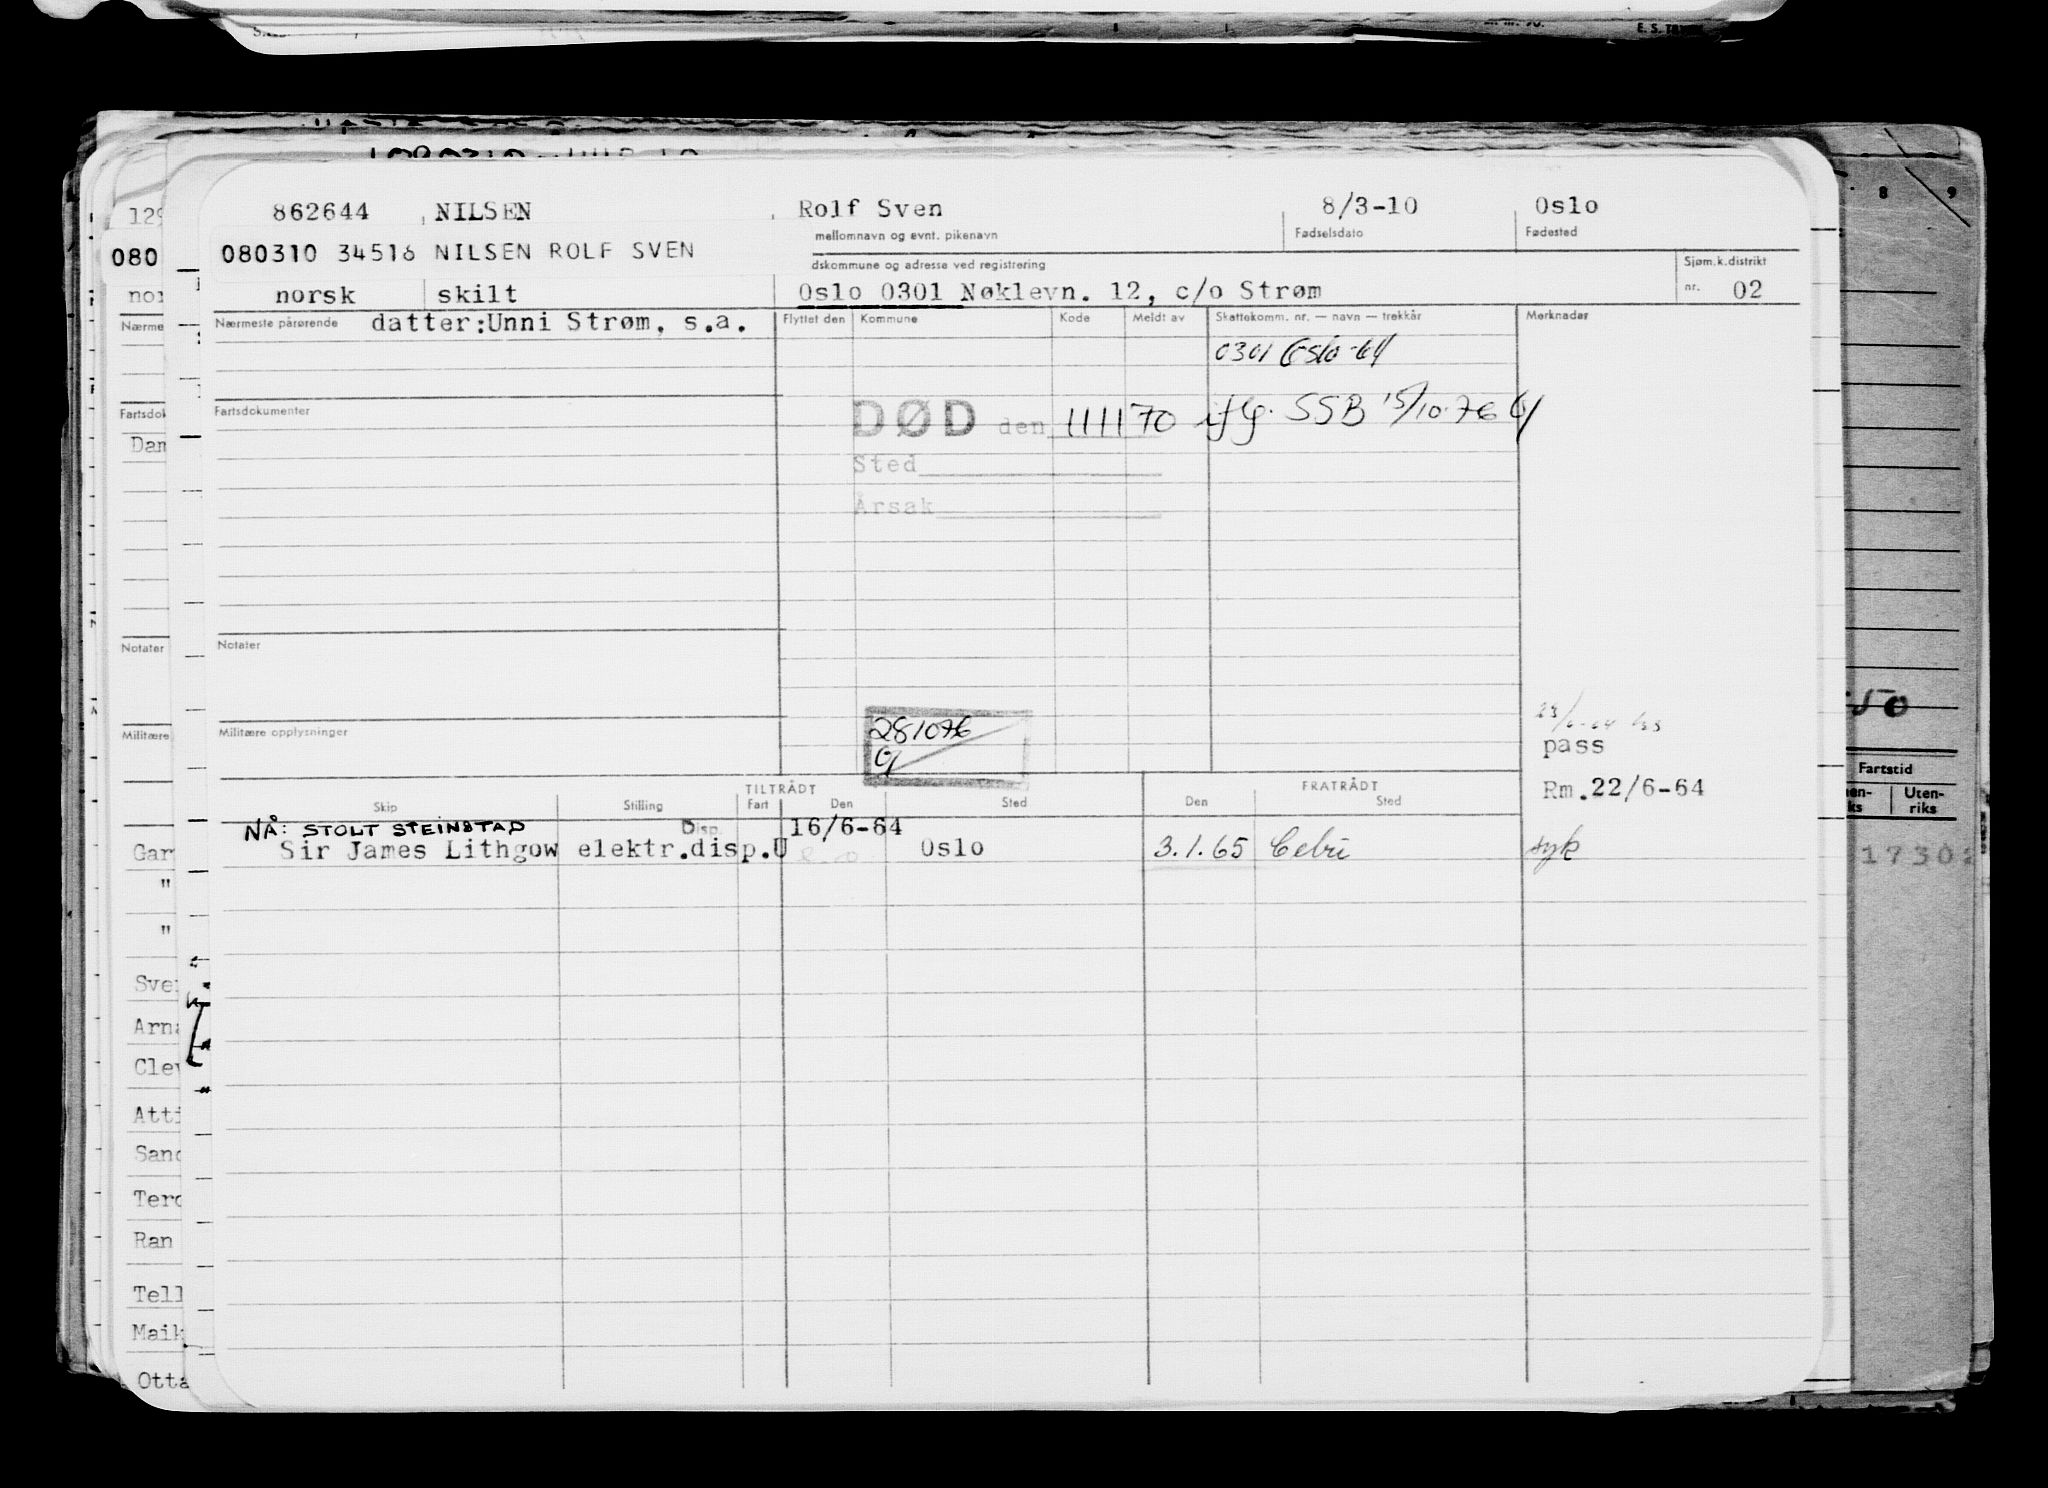 862644 NILSEN Rolf Sven 8/3-10 Oslo
mellomnavn og evnt. pikenavn Fødselsdato Fødested
080310 34516 NILSEN ROLF SVEN
dskommune og adresse ved registrering Sjøm.k.distrikt
norsk skilt Oslo 0301 Nøklevn. 12, c/o Strøm nr. 02
Nærmeste pårørende datter:Unni Strøm, s.a. Flyttet den Kommune Kode Meldt av Skattekomm. nr. — navn — trekkår Merknader
0301 Oslo -64
Fartsdokumenter
DØD den 111170 iflg. SSB 15/10-76
Sted
Årsak
Notater
281076
Militære opplysninger
pass
Rm.22/6-64
TILTRÅDT FRATRÅDT
Skip Stilling Fart Den Sted Den Sted
NÅ: STOLT STEINSTAD Disp. 16/6-64
Sir James Lithgow elektr.disp.U Oslo 3.1.65 Cebu syk
129
080
nor
Nærme
Fartsdok
Dan
Notater
Militære
Gar
"
"
Sve
Arna
Clev
Atti
Sand
Ter
Ran
Tell
Maik
Otta
8 9
50
Fartstid
Uten-
riks
17302